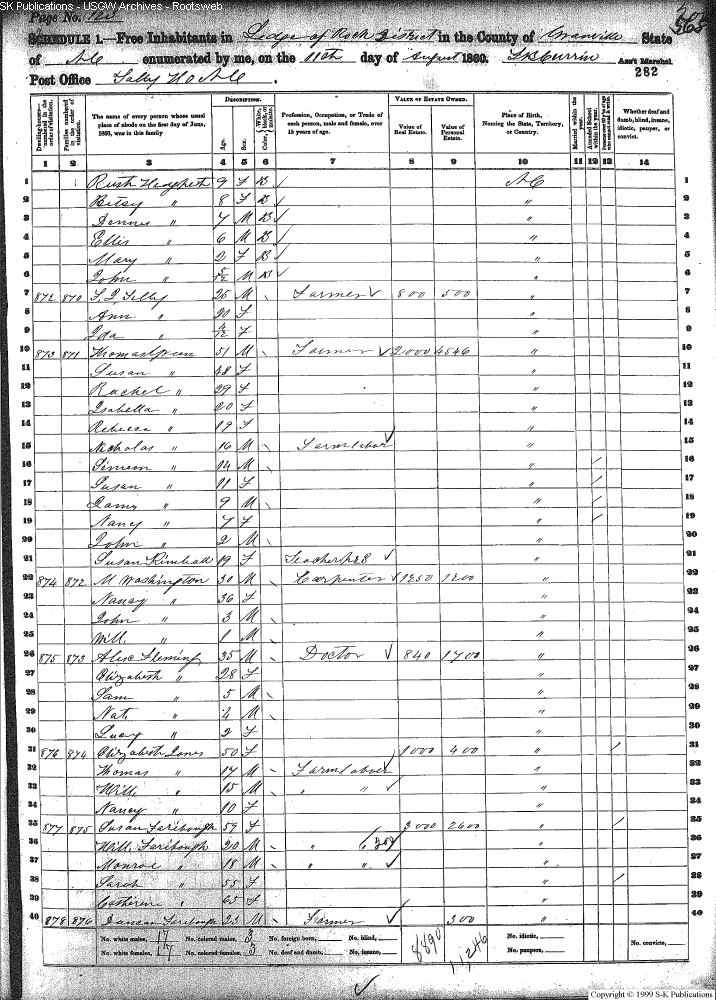 SK Publications - USGW Archives - Rootsweb
Page No. 120
SCHEDULE 1.—Free Inhabitants in Ledge of Rock District in the County of Granville State
of NC enumerated by me, on the 11th day of August 1860. Ass't Marshal.
Post Office Tally Ho NC. 282
Dwelling-houses—numbered in the order of visitation. Families numbered in the order of visitation. The name of every person whose usual place of abode on the first day of June, 1860, was in this family DESCRIPTION. Age. Sex. Color, White, black, or mulatto. Profession, Occupation, or Trade of each person, male and female, over 15 years of age. VALUE OF ESTATE OWNED. Value of Real Estate. Value of Personal Estate. Place of Birth, Naming the State, Territory, or Country. Married within the year. Attended School within the year. Persons over 20 y'rs of age who cannot read & write. Whether deaf and dumb, blind, insane, idiotic, pauper, or convict.
1 2 3 4 5 6 7 8 9 10 11 12 13 14
1 9 F B ✓ NC 1
2 Betsy " 8 F B ✓ " 2
3 Dennis " 7 M B ✓ " 3
4 Ellis " 6 M B ✓ " 4
5 Mary " 2 F B ✓ " 5
6 John " 5/12 M B ✓ " 6
7 872 870 25 M Farmer ✓ 800 500 " 7
8 Ann " 20 F " 8
9 Ida " 4/12 F " 9
10 873 871 Thomas 51 M Farmer ✓ 2000 4546 " 10
11 Susan " 48 F " 11
12 Rachel " 29 F " 12
13 Isabella " 20 F " 13
14 Rebecca " 19 F " 14
15 Nicholas " 16 M Farm labor ✓ " 15
16 Simeon " 14 M " / 16
17 Susan " 11 F " / 17
18 " 9 M " / 18
19 Nancy " 7 F " / 19
20 John " 2 M " 20
21 Susan Kimball 19 F Teacher ✓ " 21
22 874 872 M Washington 30 M Carpenter ✓ 1250 1200 " 22
23 Nancy " 36 F " 23
24 John " 3 M " 24
25 Will " 1 M " 25
26 875 873 Alex Fleming 35 M Doctor ✓ 840 1700 " 26
27 Elizabeth " 28 F " 27
28 Sam " 5 M " 28
29 Nat " 4 M " 29
30 Lucy " 2 F " 30
31 876 874 Elizabeth Jones 50 F 1000 400 " / 31
32 Thomas " 17 M Farm labor " 32
33 Will " 15 M " " ✓ " 33
34 Nancy " 10 F " 34
35 877 875 Susan Faribough 59 F 3000 2600 " / 35
36 Will Faribough 20 M " " 36
37 Monroe " 18 M " " ✓ " 37
38 Sarah " 55 F " / 38
39 Catherine " 65 F " 39
40 878 876 Duncan Faribough 23 M Farmer ✓ 300 " 40
No. white males, 17 No. colored males, 3 No. foreign born, No. blind, 8890 11,246 No. idiotic, No. convicts,
No. white females, 17 No. colored females, 3 No. deaf and dumb, No. insane, No. paupers,
✓
Copyright © 1999 S-K Publications